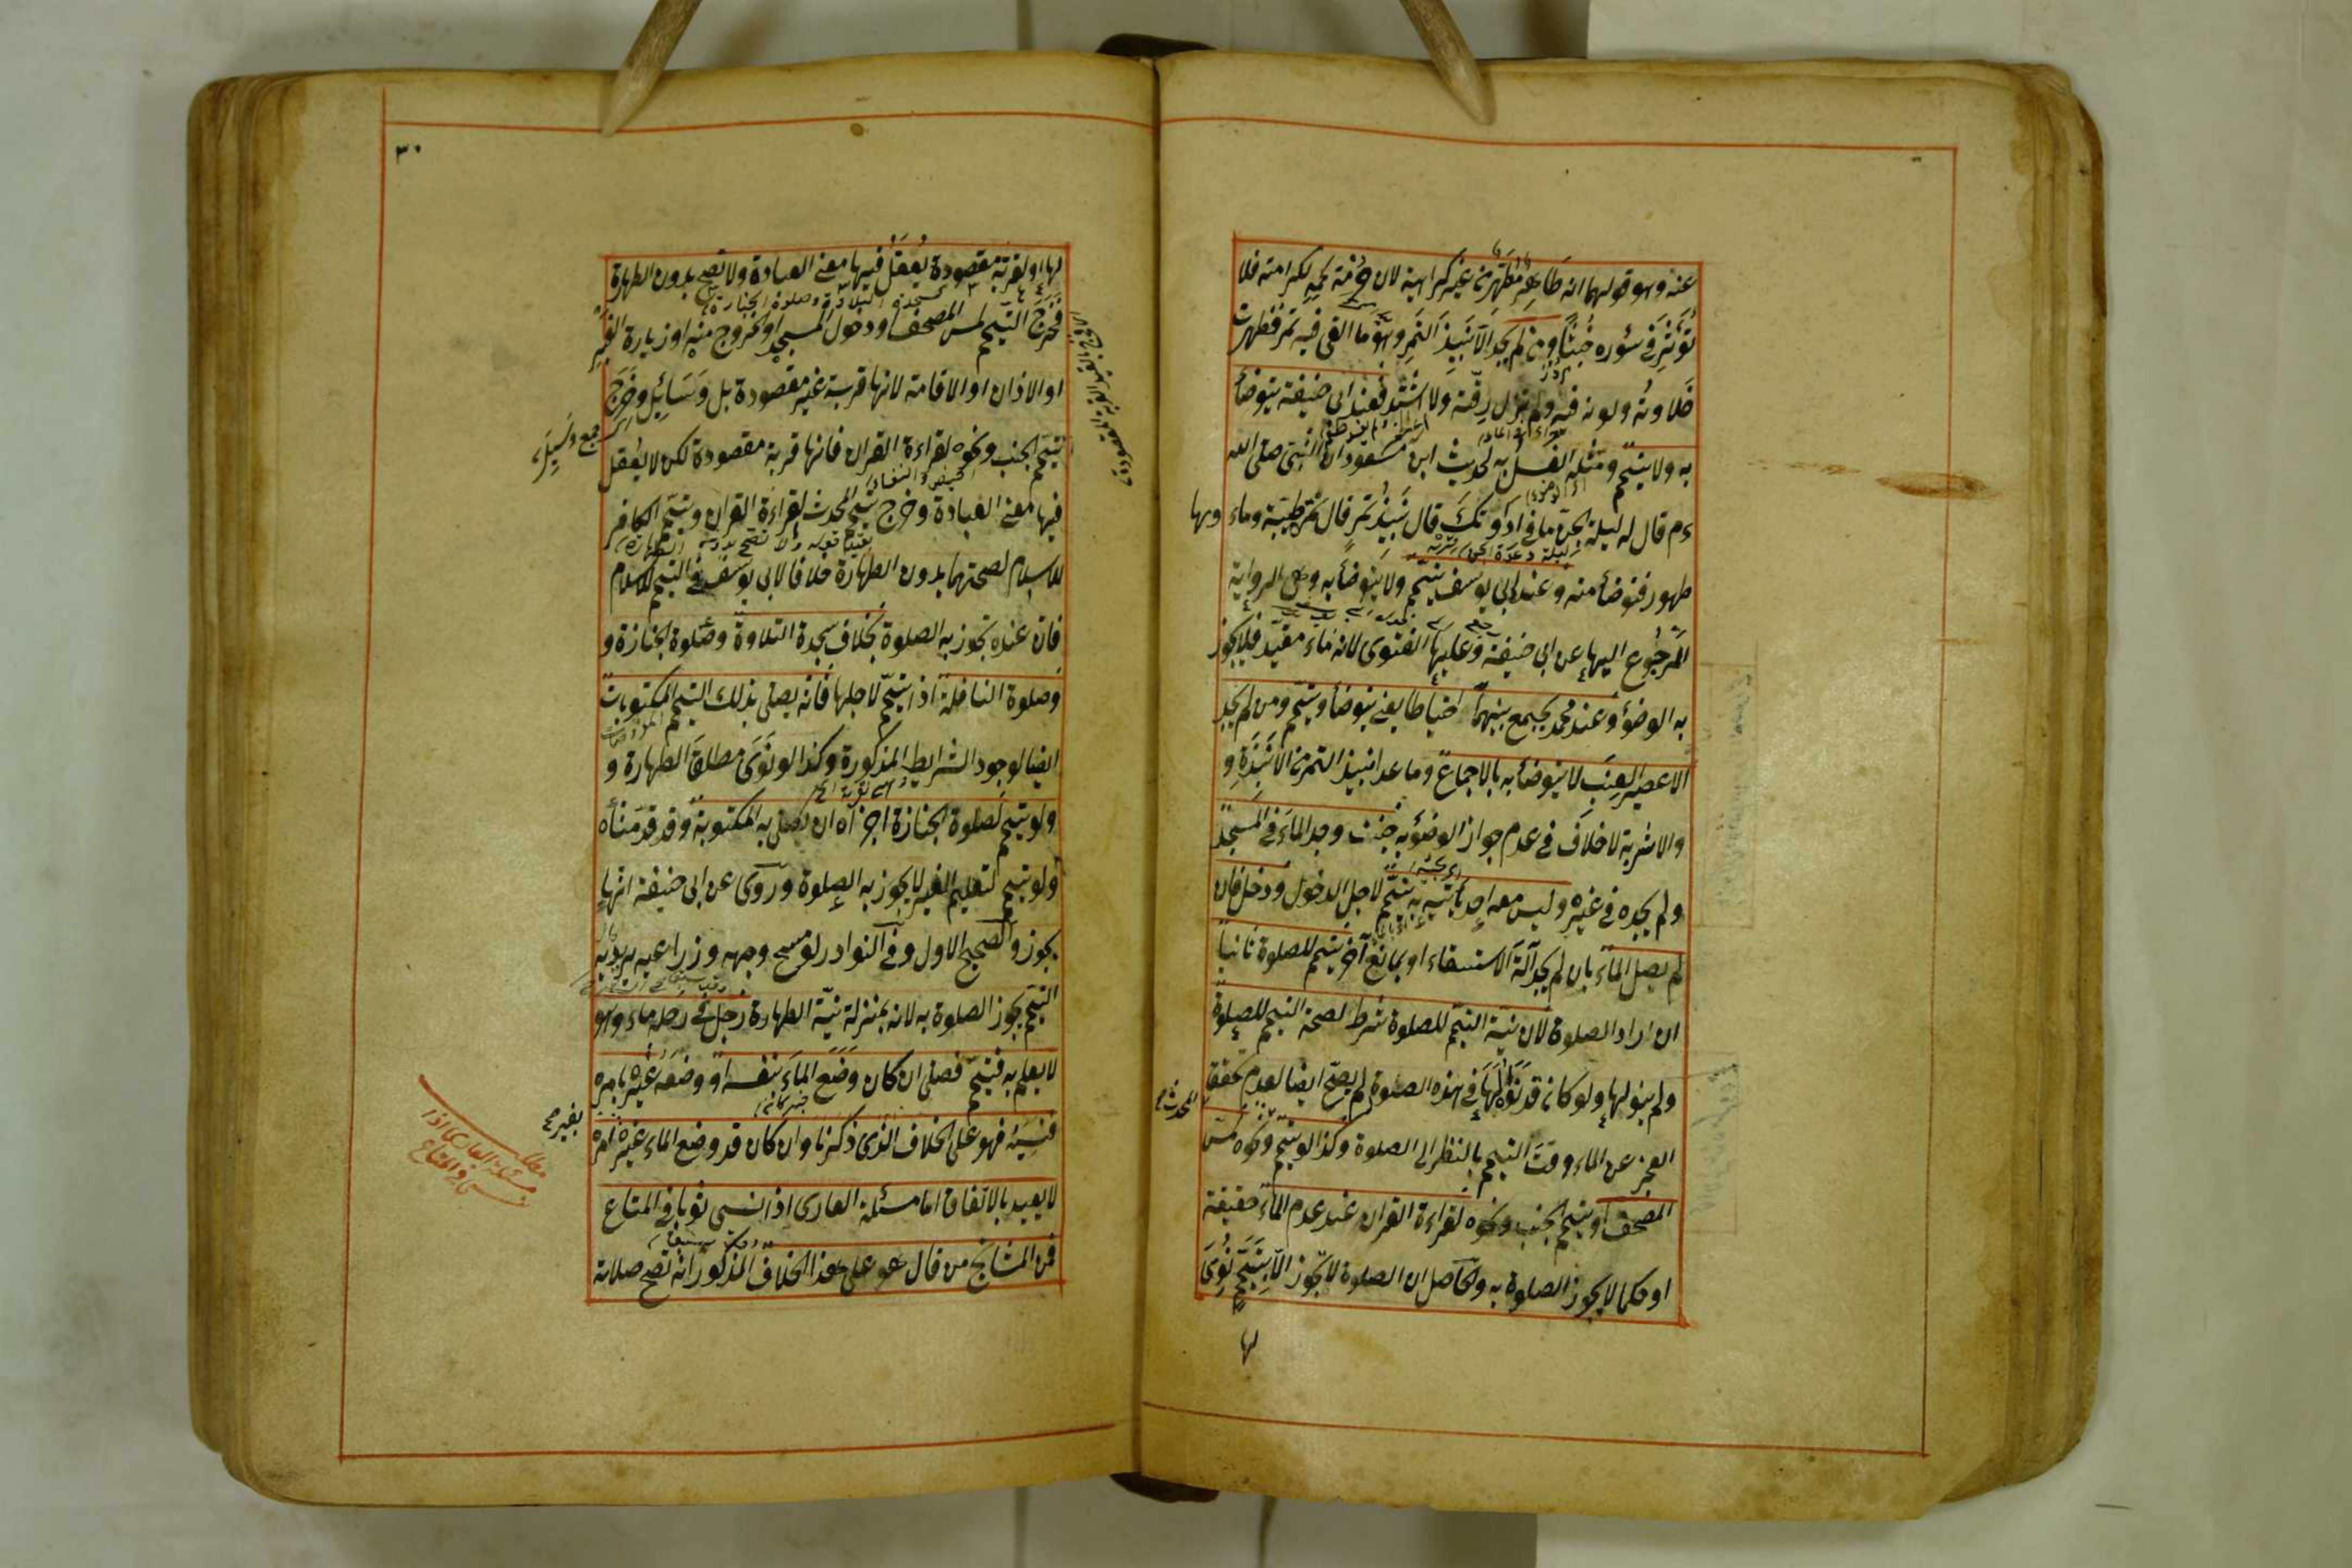 عنه وهو قولهما انه طاهر مطهر من غير كراهية لان حرمة لحمه لكرامته فلا
تؤثر في سؤره خبثا ومن لم يجد الا نبيذ التمر وهو ما القى فيه تمر فظهرت
حلاوته ولونه فيه ولم تزل رقته ولا اشتد فعند ابى حنيفة يتوضأ
به ولا يتيمم ومثله الغسل به لحديث ابن مسعود ان النبى صلى الله
ءم قال له ليلة الجن ما فى اداوتك قال نبيذ تمر قال تمرة طيبة وماء
طهور فتوضأ منه وعند ابى يوسف يتيمم ولا يتوضأ به وهى الرواية
المرجوع اليها عن ابى حنيفة وعليها الفتوى لانه ماء مقيد فلا يجوز
به الوضوء وعند محمد يجمع بينهما احتياطا يعنى يتوضأ ويتيمم ومن لم يجد
الا عصير العنب لا يتوضأ به بالاجماع وما عدا نبيذ التمر من الانبذة و
والاشربة لا خلاف فى عدم جواز الوضوء به جنب وجد الماء فى المسجد
ولم يجده فى غيره وليس معه احد يأتيه به يتيمم لاجل الدخول ودخل فان
لم يصل الماء بان لم يجد آلة الاستسقاء او بمانع آخر يتيمم للصلوة ثانيا
ان اراد الصلوة لان نية التيمم للصلوة شرط لصحة التيمم للصلوة
ولم ينو لها ولو كان قد نواه لها فى هذه الصلوة لم يصح ايضا لعدم تحقق
العجز عن الماء وقت التيمم بالنظر الى الصلوة وكذا لو تيمم ونحوه لمس
المحدث
المصحف او يتيمم الجنب ونحوه لقراءة القرآن عند عدم الماء حقيقة
او حكما لا يجوز الصلوة به والحاصل ان الصلوة لا تجوز الا بتيمم نوى
لها
٣٠
لها او لقربة مقصودة يعقل فيها معنى العبادة ولا تصح بدون الطهارة
فخرج التيمم لمس المصحف او دخول المسجد او الخروج منه او زيارة القبر
او الاذان او الاقامة لانها قربة غير مقصودة بل وسائل وخرج
تيمم الجنب ونحوه لقراءة القران فانها قربة مقصودة لكن لا يعقل
فيها معنى العبادة وخرج تيمم المحدث لقراءة القران وتيمم الكافر
للاسلام لصحتهما بدون الطهارة خلافا لابى يوسف فى التيمم للاسلام
فان عنده تجوز به الصلوة بخلاف سجدة التلاوة وصلوة الجنازة و
وصلوة النافلة اذا تيمم لاجلها فانه يصلى بذلك التيمم المكتوبات
ايضا لوجود الشرايط المذكورة وكذا لو نوى مطلق الطهارة و
ولو تيمم لصلوة الجنازة اجزأه ان يصلى به المكتوبة وقد قدمناه
ولو تيمم لتعليم الغير لا يجوز به الصلوة وروى عن ابى حنيفة انها
يجوز والصحيح الاول وفى النوادر لو مسح وجهه وذراعيه يريد به
التيمم يجوز الصلوة به لانه بمنزلة نية الطهارة رجل فى رحله ماء وهو
لا يعلم به فتيمم فصلى ان كان وضع الماء بنفسه او وضعه غيره بامره
فنسيه فهو على الخلاف الذى ذكرنا وان كان قد وضع الماء غيره بغير امره
لا يعيد بالاتفاق اما مسئلة العارى اذا نسى ثوبا فى المتاع
فمن المشايخ من قال هو على هذا الخلاف المذكور انه تصح صلاته
جمع وسيلة
مطلب مسئلة العارى اذا
نسى فى المتاع